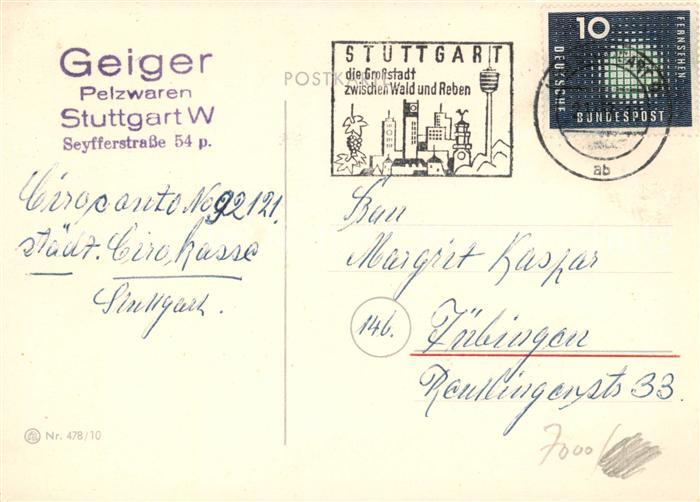 Geiger
Pelzwaren
Stuttgart W
Seyfferstraße 54 p.
POSTKARTE
STUTTGART
die Großstadt
zwischen Wald und Reben
10
FERNSEHEN
DEUTSCHE
BUNDESPOST
ab
Giroconto No 92121.
städt. Girokasse
Stuttgart.
Frau
Margrit Kaspar
14b.
Tübingen
Reutlingerstr 33.
Nr. 478/10
7000/